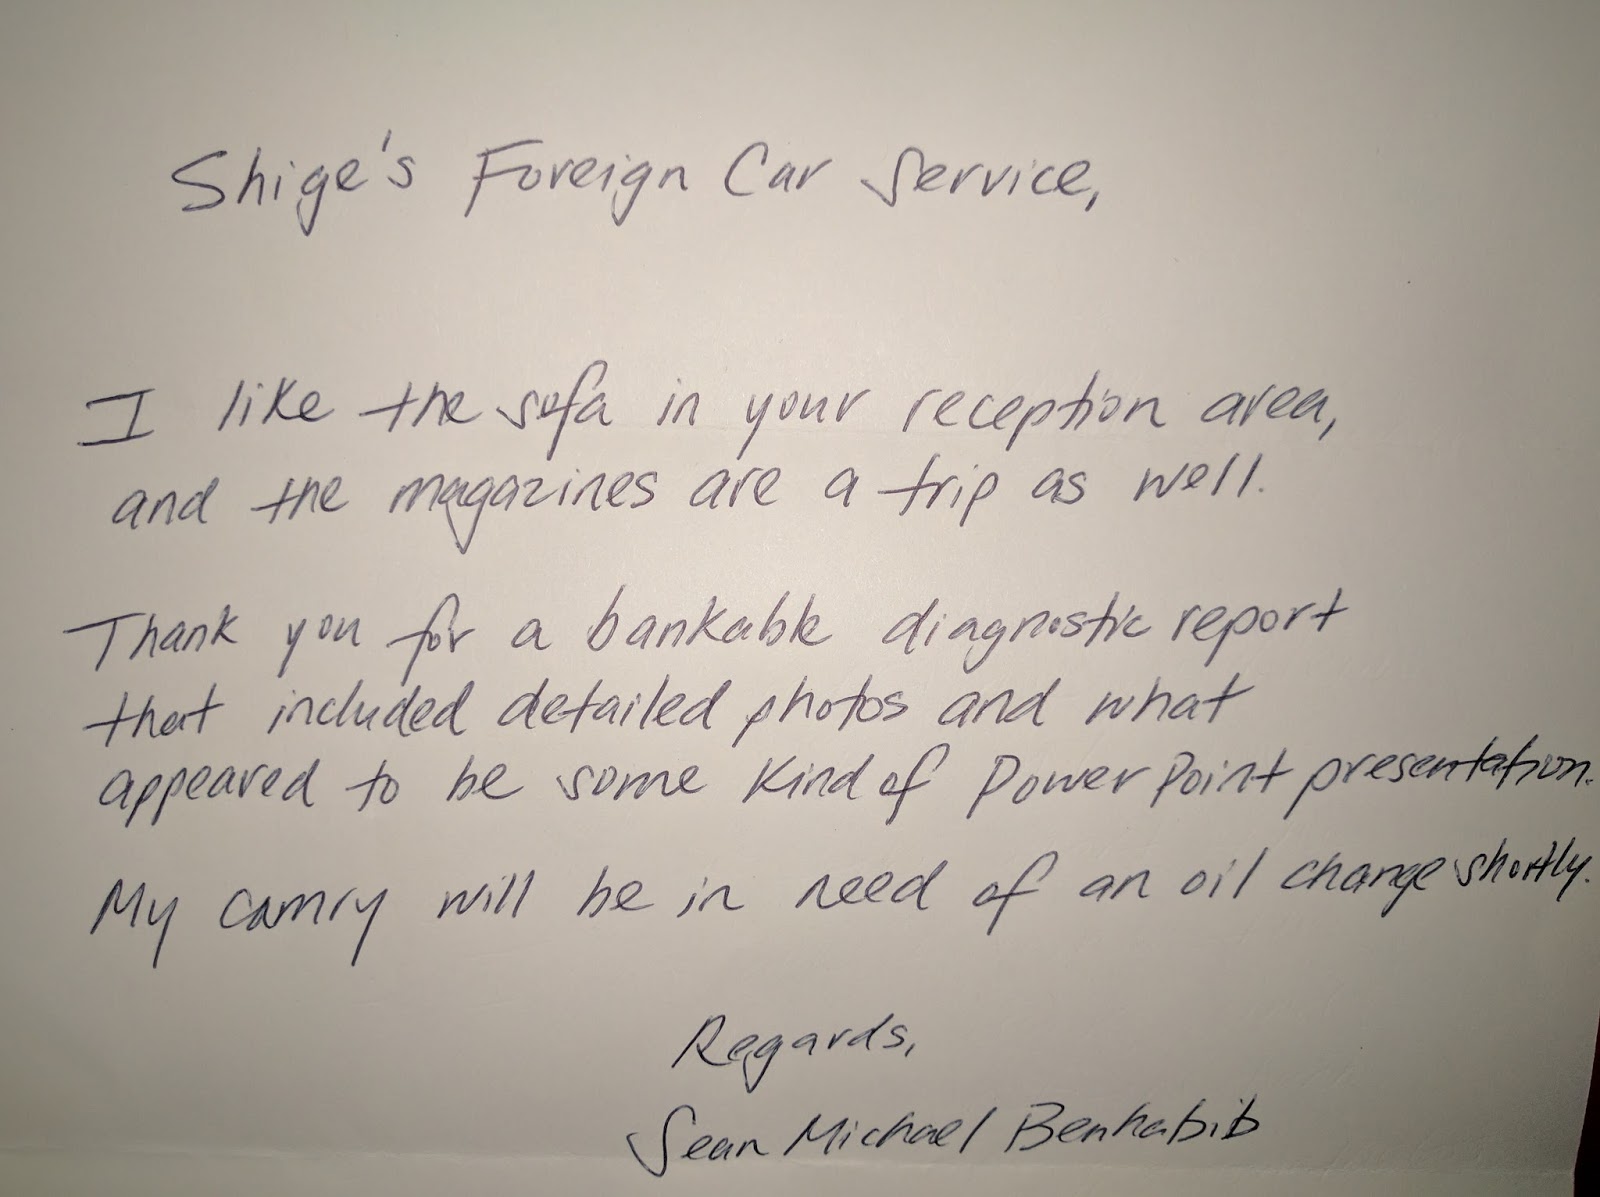 Shige's Foreign Car Service,
I like the sofa in your reception area,
and the magazines are a trip as well.
Thank you for a bankable diagnostic report
that included detailed photos and what
appeared to be some kind of PowerPoint presentation.
My camry will be in need of an oil change shortly.
Regards,
Sean Michael Benhabib